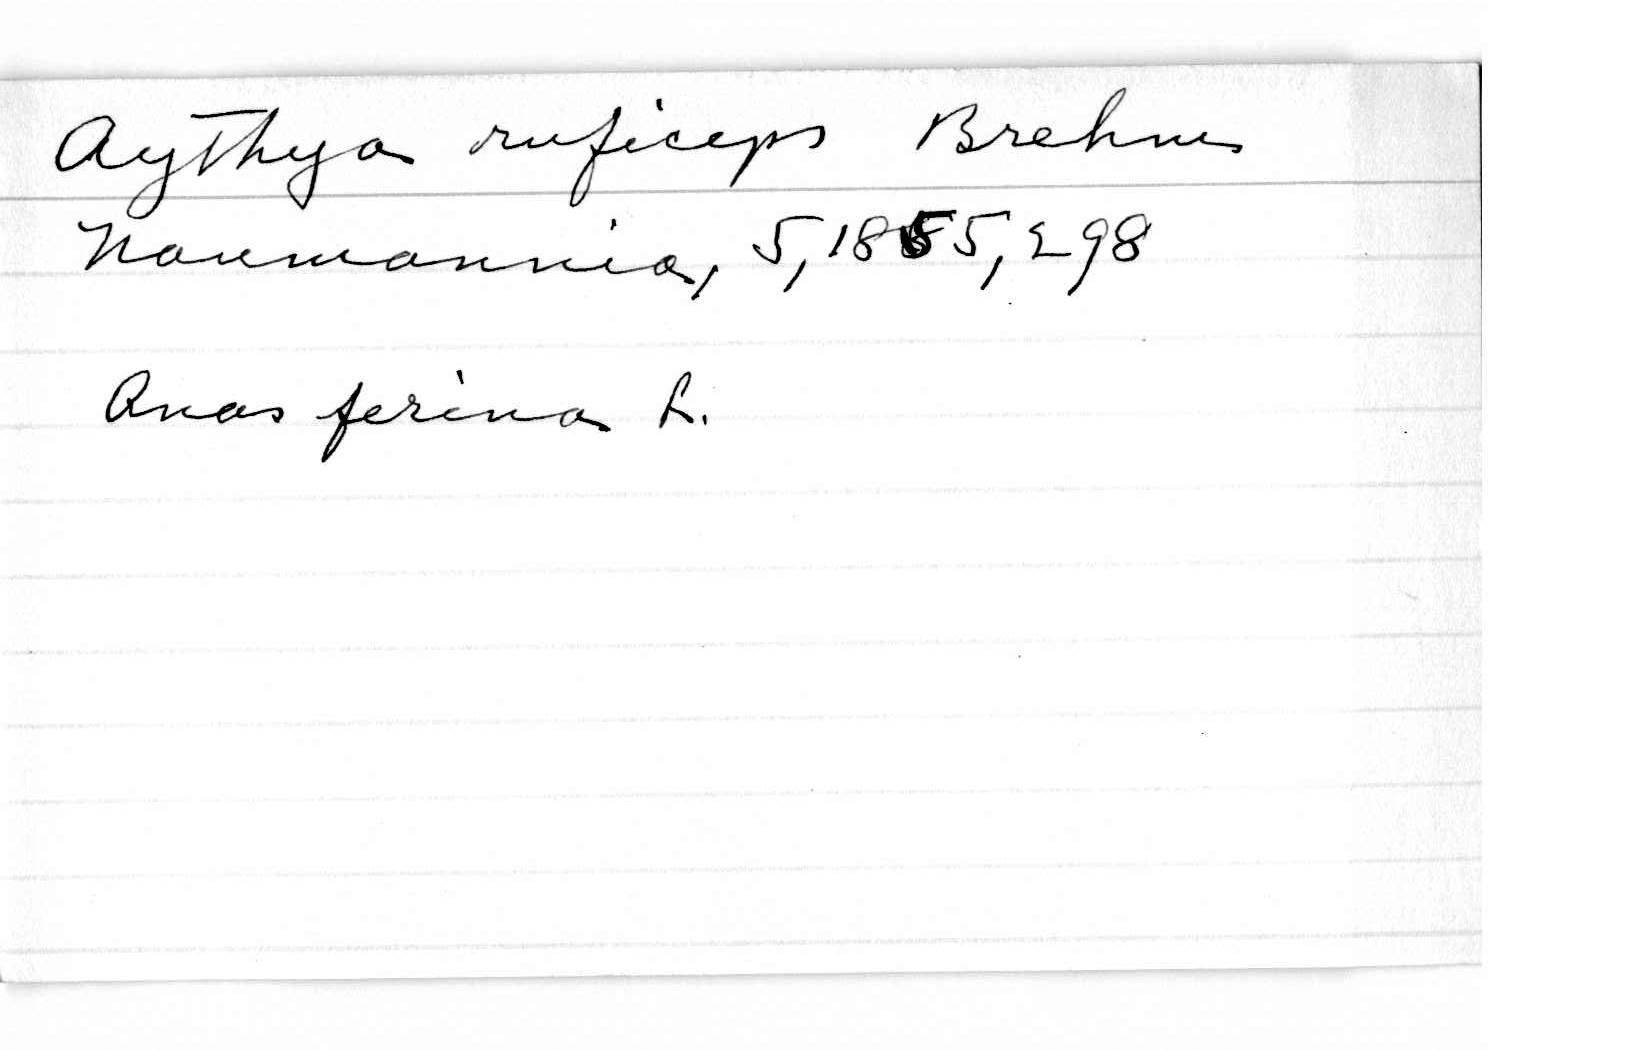 Aythya ruficeps Brehm
Naumannia, 5, 1855, 298
Anas ferina L.